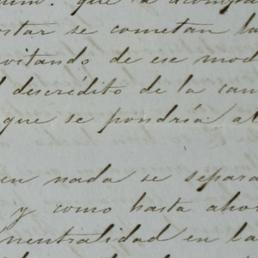 que la acompa
star se cometan la
evitando de ese mod
l descrédito de la cau
que se pondría al
en nada se separa
y como hasta ahor
neutralidad en la